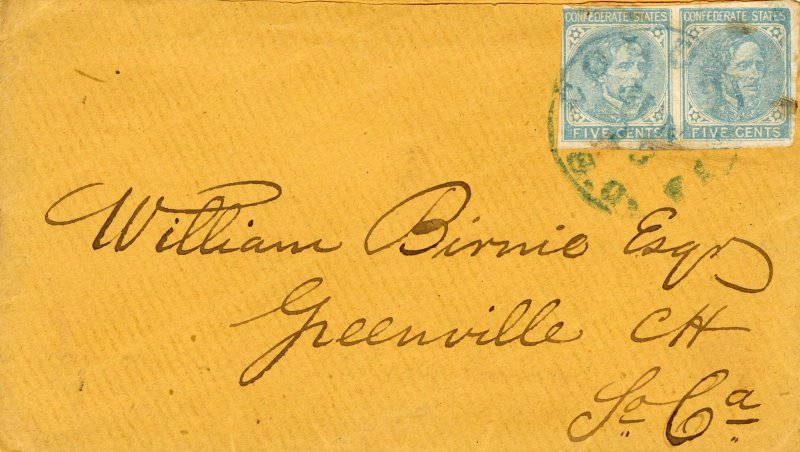 CONFEDERATE STATES CONFEDERATE STATES
FIVE CENTS FIVE CENTS
William Birnie Esqr
Greenville CH
So Ca